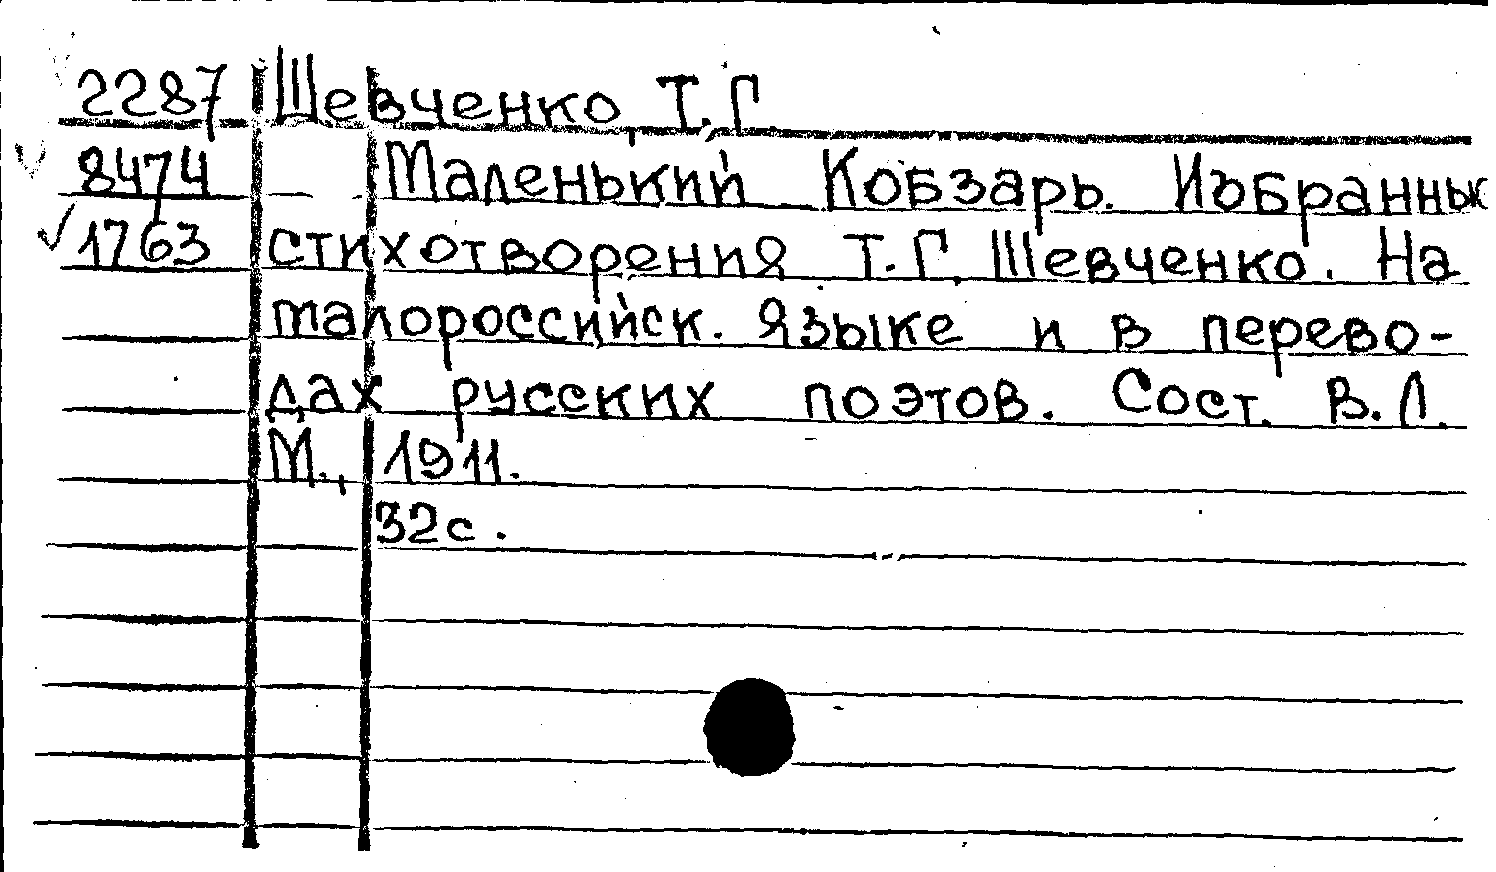 2287 Шевченко, Т.Г.
8474 Маленький Кобзарь. Избранные
1763 стихотворения Т.Г. Шевченко. На
малороссийск. языке и в перево-
дах русских поэтов. Сост. В.Л.
М., 1911.
32с.